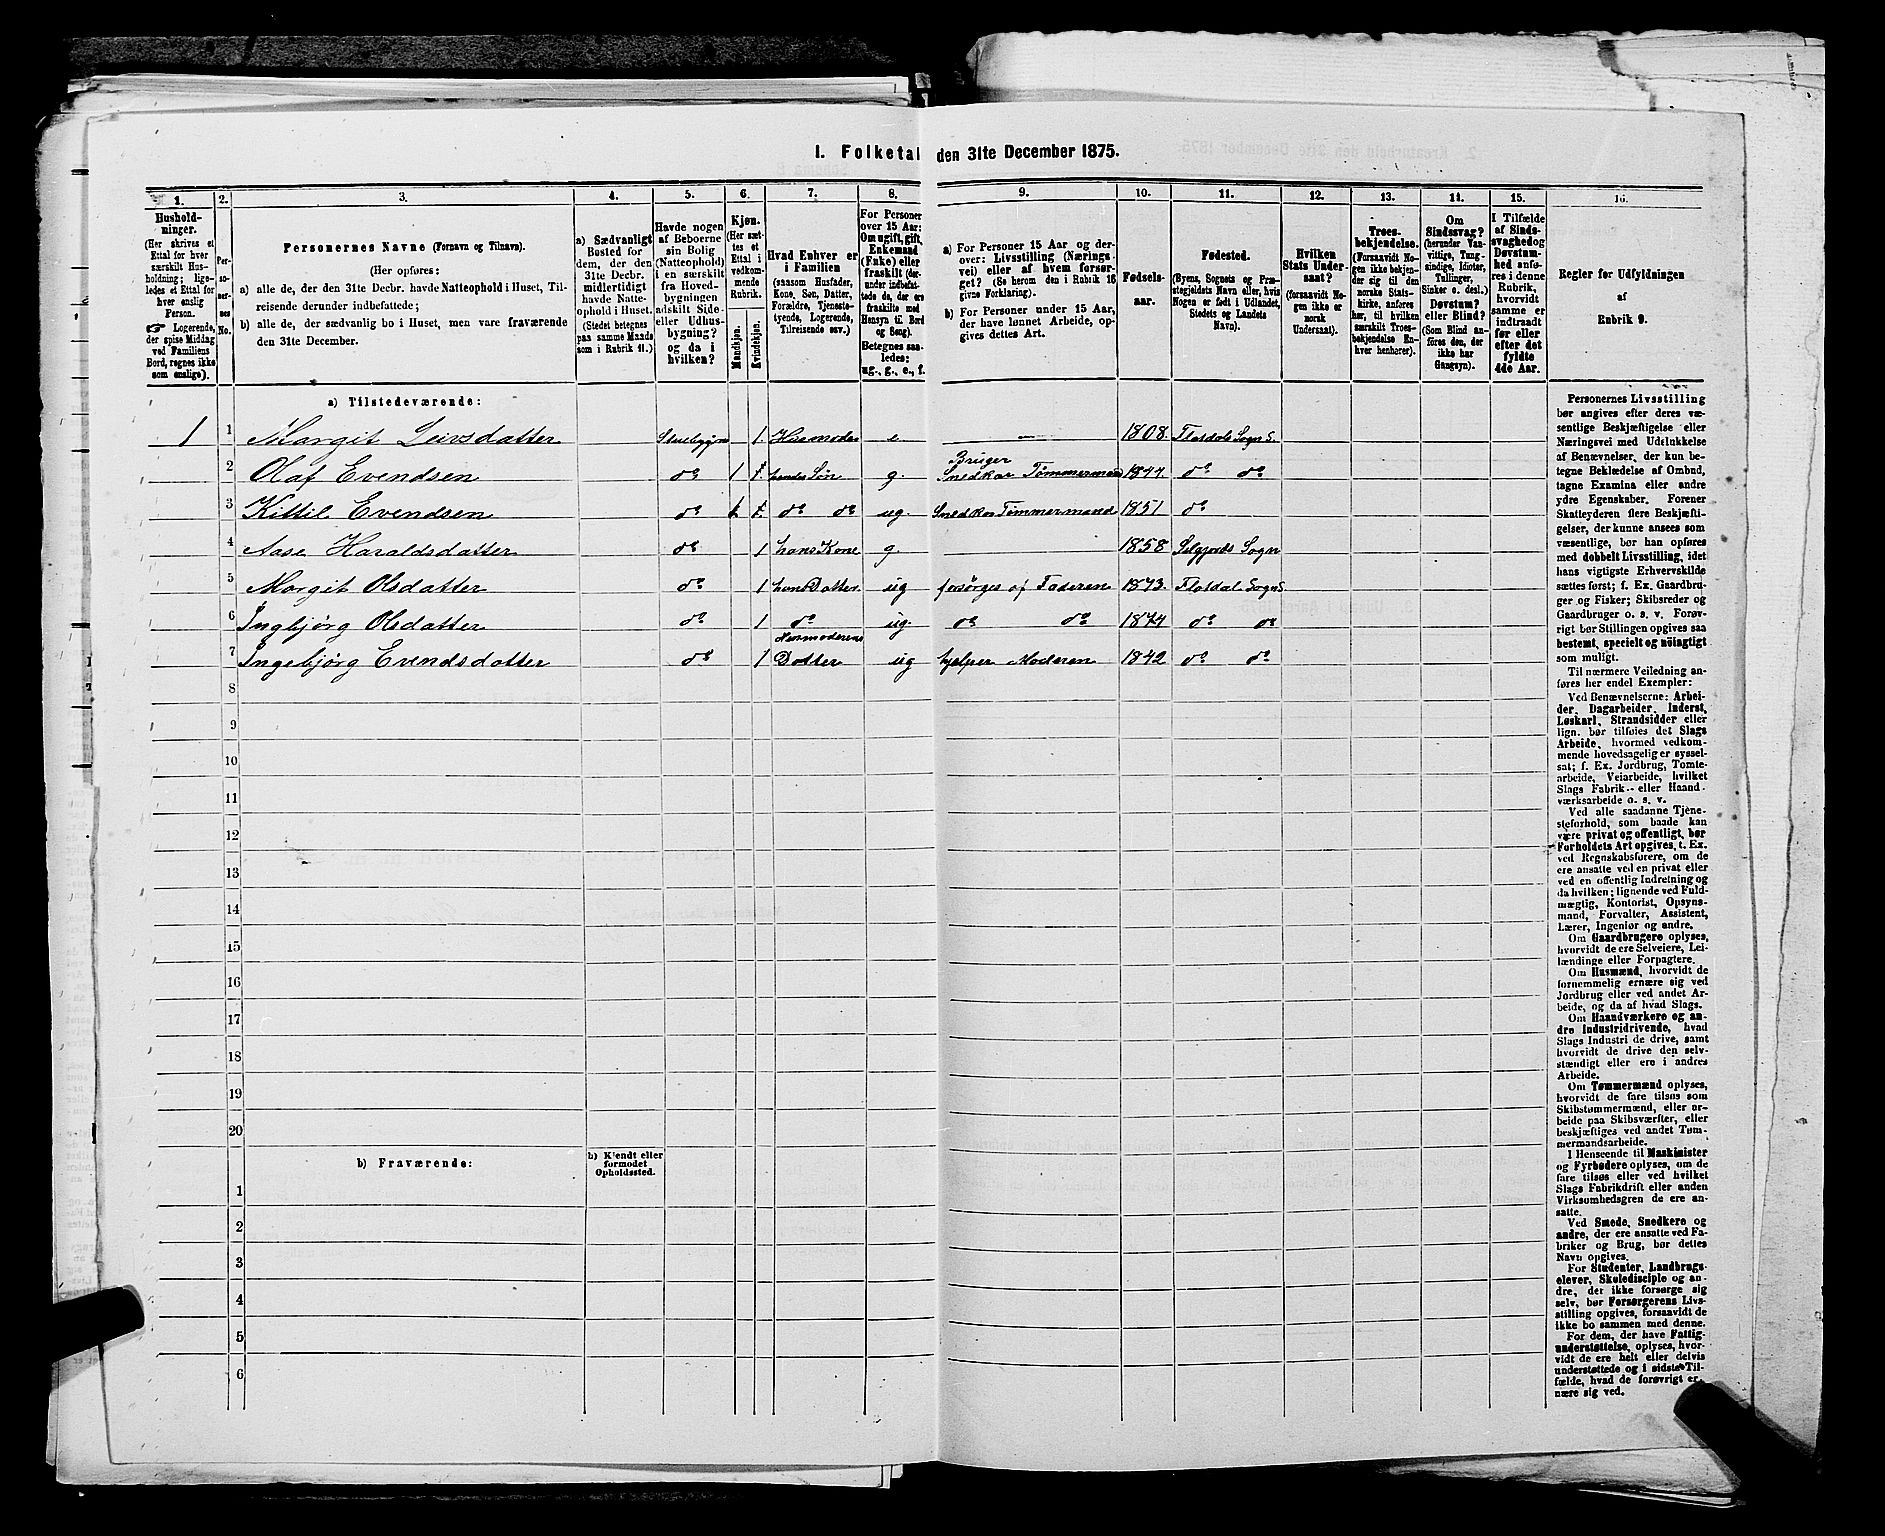 I. Folketal den 31te December 1875.
1.
Hushold-
ninger.
(Her skrives et
Ettal for hver
særskilt Hus-
holdning; lige-
ledes et Ettal for
hver enslig
Person.
Logerende,
der spise Middag
ved Familiens
Bord, regnes ikke
som enslige).
2.
Per-
so-
ner-
nes
No.
3.
Personernes Navne (Fornavn og Tilnavn).
(Her opføres:
a) alle de, der den 31te Decbr. havde Natteophold i Huset, Til-
reisende derunder indbefattede;
b) alle de, der sædvanlig bo i Huset, men vare fraværende
den 31te December.
4.
a) Sædvanligt
Bosted for
dem, der den
31te Decbr.
midlertidigt
havde Natte-
ophold i Huset.
(Stedet betegnes
paa samme Maade
som i Rubrik 11.)
5.
Havde nogen
af Beboerne
sin Bolig
(Natteophold)
i en særskilt
fra Hoved-
bygningen
adskilt Side-
eller Udhus-
bygning?
og da i
hvilken?
6.
Kjøn.
(Her sæt-
tes et
Ettal i
vedkom-
mende
Rubrik.
Mandkjøn.
Kvindekjøn.
7.
Hvad Enhver er
i Familien
(saasom Husfader,
Kone, Søn, Datter,
Forældre, Tjeneste-
tyende, Logerende,
Tilreisende osv.)
8.
For Personer
over 15 Aar:
Om ugift, gift,
Enkemand
(Enke) eller
fraskilt
Betegnes saa-
ledes:
ug., g., e., f.
9.
a) For Personer 15 Aar og der-
over: Livsstilling (Nærings-
vei) eller af hvem forsør-
get? (Se herom den i Rubrik 16
givne Forklaring).
b) For Personer under 15 Aar,
der have lønnet Arbeide, op-
gives dettes Art.
10.
Fødsels-
aar.
11.
Fødested.
(Byens, Sognets og Præ-
stegjeldets Navn eller, hvis
Nogen er født i Udlandet,
Stedets og Landets
Navn).
12.
Hvilken
Stats Under-
saat?
(forsaavidt No-
gen ikke er
norsk
Undersaat).
13.
Troes-
bekjendelse.
(Forsaavidt No-
gen ikke bekjen-
der sig til den
norske Stats-
kirke, anføres
her, til hvilken
særskilt Troes-
bekjendelse En-
hver henhører).
14.
Om
Sindssvag?
(herunder Van-
vittige, Idioter,
Tullinger,
Sinker o. desl.)
Døvstum?
eller Blind?
(Som Blind an-
føres den, der
ikke har
Gangsyn).
15.
I Tilfælde
af Sinds-
svaghed og
Døvstum-
hed anfø-
res i denne
Rubrik,
hvorvidt
samme er
indtraadt
før eller
efter det
fyldte
4de Aar.
16.
Regler før Udfyldningen
af
Rubrik 9.
a) Tilstedeværende:
1 1 Margit Leivsdatter 1. Husmoder e — 1808. Flatdals Sogn S.
Bruger
2 Olaf Evendsen do 1 1 hendes Søn g. Snedker Tømmermand 1844 do do
3 Kittil Evendsen do 1 1 do do ug. Snedker Tømmermand 1851 do
4 Aase Haraldsdatter do 1 hans Kone g. 1858 Selgjords Sogn
5 Margit Olsdatter do 1 hans Datter. ug forsørges af Faderen 1873. Flatdal Sogn S.
6 Ingbjørg Olsdatter do 1 do ug. do do 1874 do do
Husmoderens
7 Ingebjørg Evendsdatter do 1 Datter ug hjelper Moderen 1842 do do
8
9
10
11
12
13
14
15
16
17
18
19
20
b) Fraværende:
b) Kjendt eller
formodet
Opholdssted.
1
2
3
4
5
6
Personernes Livsstilling
bør angives efter deres væ-
sentlige Beskjæftigelse eller
Næringsvei med Udelukkelse
af Benævnelser, der kun be-
tegne Beklædelse af Ombud,
tagne Examina eller andre
ydre Egenskaber. Forener
Skatteyderen flere Beskjæfti-
gelser, der kunne ansees som
væsentlige, bør han opføres
med dobbelt Livsstilling, idet
hans vigtigste Erhvervskilde
sættes først; f. Ex. Gaardbru-
ger og Fisker; Skibsreder og
Gaardbruger o. s. v. Forøv-
rigt bør Stillingen opgives saa
bestemt, specielt og nøiagtigt
som muligt.
Til nærmere Veiledning an-
føres her endel Exempler:
Ved Benævnelserne: Arbei-
der, Dagarbeider, Inderst,
Løskarl, Strandsidder eller
lign. bør tilføies det Slags
Arbeide, hvormed vedkom-
mende hovedsagelig er syssel-
sat; f. Ex. Jordbrug, Tomte-
arbeide, Veiarbeide, hvilket
Slags Fabrik- eller Haand-
værksarbeide o. s. v.
Ved alle saadanne Tjene-
steforhold, som baade kan
være privat og offentligt, bør
Forholdets Art opgives, t. Ex.
ved Regnskabsførere, om de
ere ansatte ved en privat eller
ved en offentlig Indretning og
da hvilken; lignende ved Fuld-
mægtig, Kontorist, Opsyns-
mand, Forvalter, Assistent,
Lærer, Ingeniør og andre.
Om Gaardbrugere oplyses,
hvorvidt de ere Selveiere, Lei-
lændinge eller Forpagtere.
Om Husmænd, hvorvidt de
fornemmelig ernære sig ved
Jordbrug eller ved andet Ar-
beide, og da af hvad Slags.
Om Haandværkere og an-
dre Industridrivende, hvad
Slags Industri de drive, samt
hvorvidt de drive den selv-
stændigt eller ere i andres
Arbeide.
Om Tømmermænd oplyses,
hvorvidt de fare tilsøs som
Skibstømmermænd, eller ar-
beide paa Skibsværfter, eller
beskjæftiges ved andet Tøm-
mermandsarbeide.
I Henseende til Maskinister
og Fyrbødere oplyses, om de
fare tilsøs eller ved hvilket
Slags Fabrikdrift eller anden
Virksomhedsgren de ere an-
satte.
Ved Smede, Snedkere og
andre, der ere ansatte ved Fa-
briker og Brug, bør dettes
Navn opgives.
For Studenter, Landbrugs-
elever, Skoledisciple og an-
dre, der ikke forsørge sig
selv, bør Forsørgerens Livs-
stilling opgives, forsaavidt de
ikke bo sammen med denne.
For dem, der have Fattig-
understøttelse, oplyses, hvor-
vidt de ere helt eller delvis
understøttede og i sidste Til-
fælde, hvad de forøvrigt er-
nære sig ved.